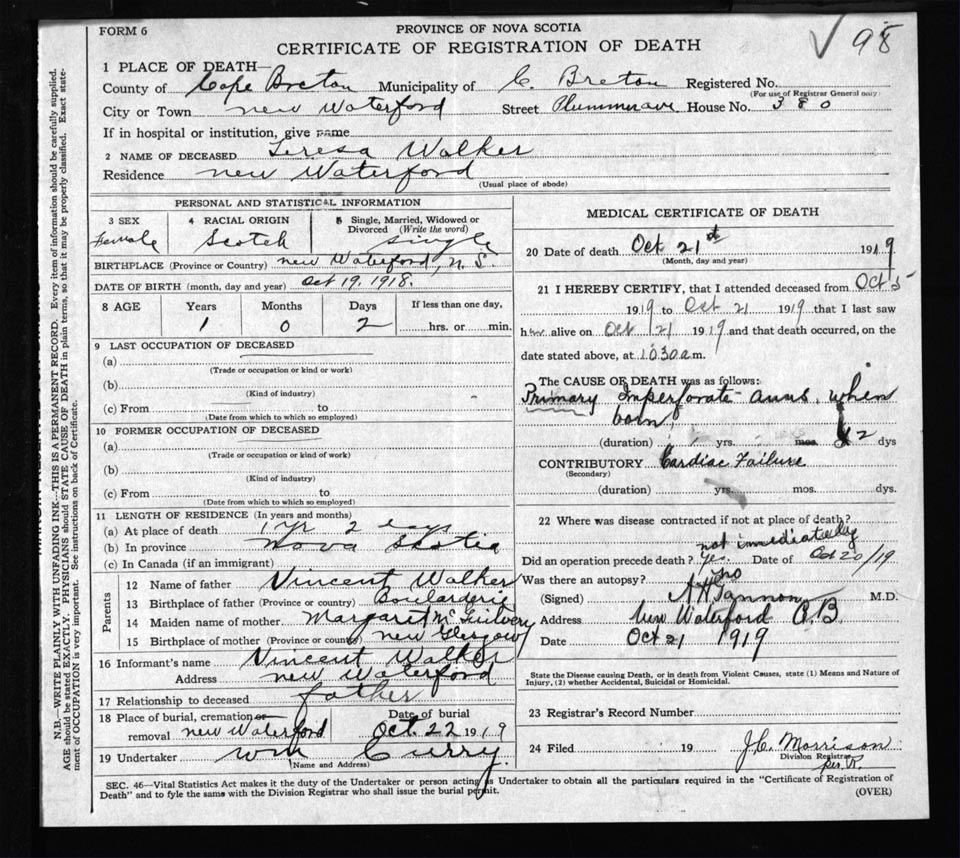 FORM 6
PROVINCE OF NOVA SCOTIA
98
CERTIFICATE OF REGISTRATION OF DEATH
1 PLACE OF DEATH—
County of Cape Breton Municipality of C. Breton Registered No.
(For use of Registrar General only)
City or Town New Waterford Street Plummer ave House No. 380
If in hospital or institution, give name
2 NAME OF DECEASED Teresa Walker
Residence New Waterford
(Usual place of abode)
PERSONAL AND STATISTICAL INFORMATION
3 SEX 4 RACIAL ORIGIN 5 Single, Married, Widowed or Divorced (Write the word)
Female Scotch single
BIRTHPLACE (Province or Country) New Waterford, N.S.
DATE OF BIRTH (month, day and year) Oct 19. 1918.
8 AGE Years Months Days If less than one day,
1 0 2 hrs. or min.
9 LAST OCCUPATION OF DECEASED
(a)
(Trade or occupation or kind or work)
(b)
(Kind of industry)
(c) From to
(Date from which to which so employed)
10 FORMER OCCUPATION OF DECEASED
(a)
(Trade or occupation or kind of work)
(b)
(Kind of industry)
(c) From to
(Date from which to which so employed)
11 LENGTH OF RESIDENCE (In years and months)
(a) At place of death 1 yr 2 days
(b) In province Nova Scotia
(c) In Canada (if an immigrant)
Parents
12 Name of father Vincent Walker
13 Birthplace of father (Province or country) Boularderie
14 Maiden name of mother Margaret
15 Birthplace of mother (Province or country) New Glasgow
16 Informant's name Vincent Walker
Address New Waterford
17 Relationship to deceased father
18 Place of burial, cremation or Date of burial
removal New Waterford Oct. 22 1919
19 Undertaker Wm Curry.
(Name and Address)
MEDICAL CERTIFICATE OF DEATH
20 Date of death Oct 21st 1919
(Month, day and year)
21 I HEREBY CERTIFY, that I attended deceased from Oct 5
1919 to Oct 21 1919 that I last saw
her alive on Oct 21 1919 and that death occurred, on the
date stated above, at 10.30 a.m.
The CAUSE OF DEATH was as follows:
Primary Imperforate anus when
born
(duration) yrs. mos. 2 dys
CONTRIBUTORY Cardiac Failure
(Secondary)
(duration) yrs. mos. dys.
22 Where was disease contracted if not at place of death?
not immediately
Did an operation precede death? Yes Date of Oct 20/19
Was there an autopsy? no
(Signed) M.D.
Address New Waterford C.B.
Date Oct 21 1919
State the Disease causing Death, or in death from Violent Causes, state (1) Means and Nature of
Injury, (2) whether Accidental, Suicidal or Homicidal.
23 Registrar's Record Number
24 Filed 19 J.C. Morrison
Division Registrar
SEC. 46—Vital Statistics Act makes it the duty of the Undertaker or person acting as Undertaker to obtain all the particulars required in the "Certificate of Registration of
Death" and to fyle the same with the Division Registrar who shall issue the burial permit.
(OVER)
N.B.—WRITE PLAINLY WITH UNFADING INK—THIS IS A PERMANENT RECORD. Every item of information should be carefully supplied.
AGE should be stated EXACTLY. PHYSICIANS should STATE CAUSE OF DEATH in plain terms, so that it may be properly classified. Exact state-
ment of OCCUPATION is very important. See instructions on back of Certificate.